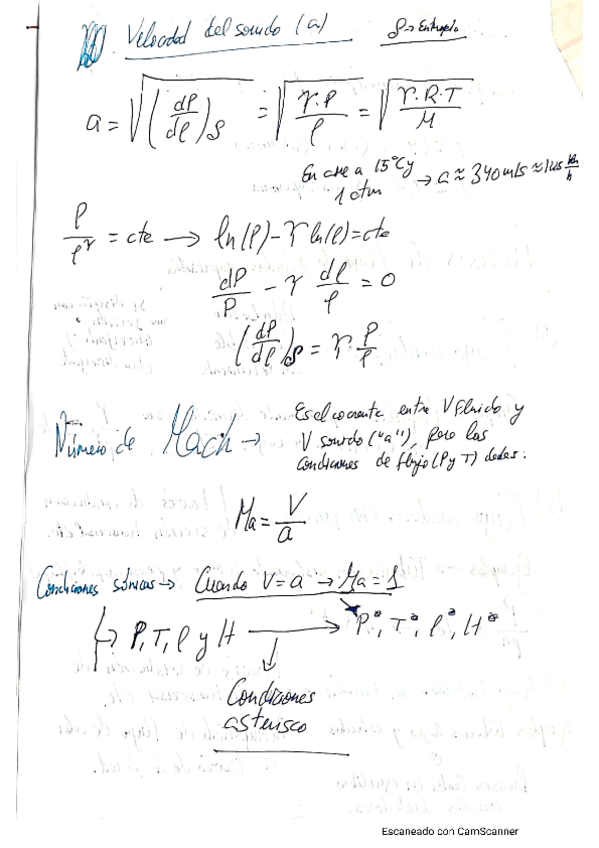 Velocidad del sonido (a)
S → Entropía
a = √(dP/dρ)s = √(γ·P/ρ) = √(γ·R·T/M)
En aire a 15°C y
1 atm → a ≈ 340 m/s ≈ km/h
P/ρ^γ = cte → ln(P) - γ ln(ρ) = cte
dP/P - γ dρ/ρ = 0
(dP/dρ)s = γ·P/ρ
Número de Mach →
Es el cociente entre V fluido y
V sonido ("a"), para las
condiciones de flujo (P y T) dadas:
Ma = V/a
Condiciones sónicas → Cuando V = a → Ma = 1
↳ P, T, ρ y H → P*, T*, ρ*, H*
Condiciones
asterisco
Escaneado con CamScanner